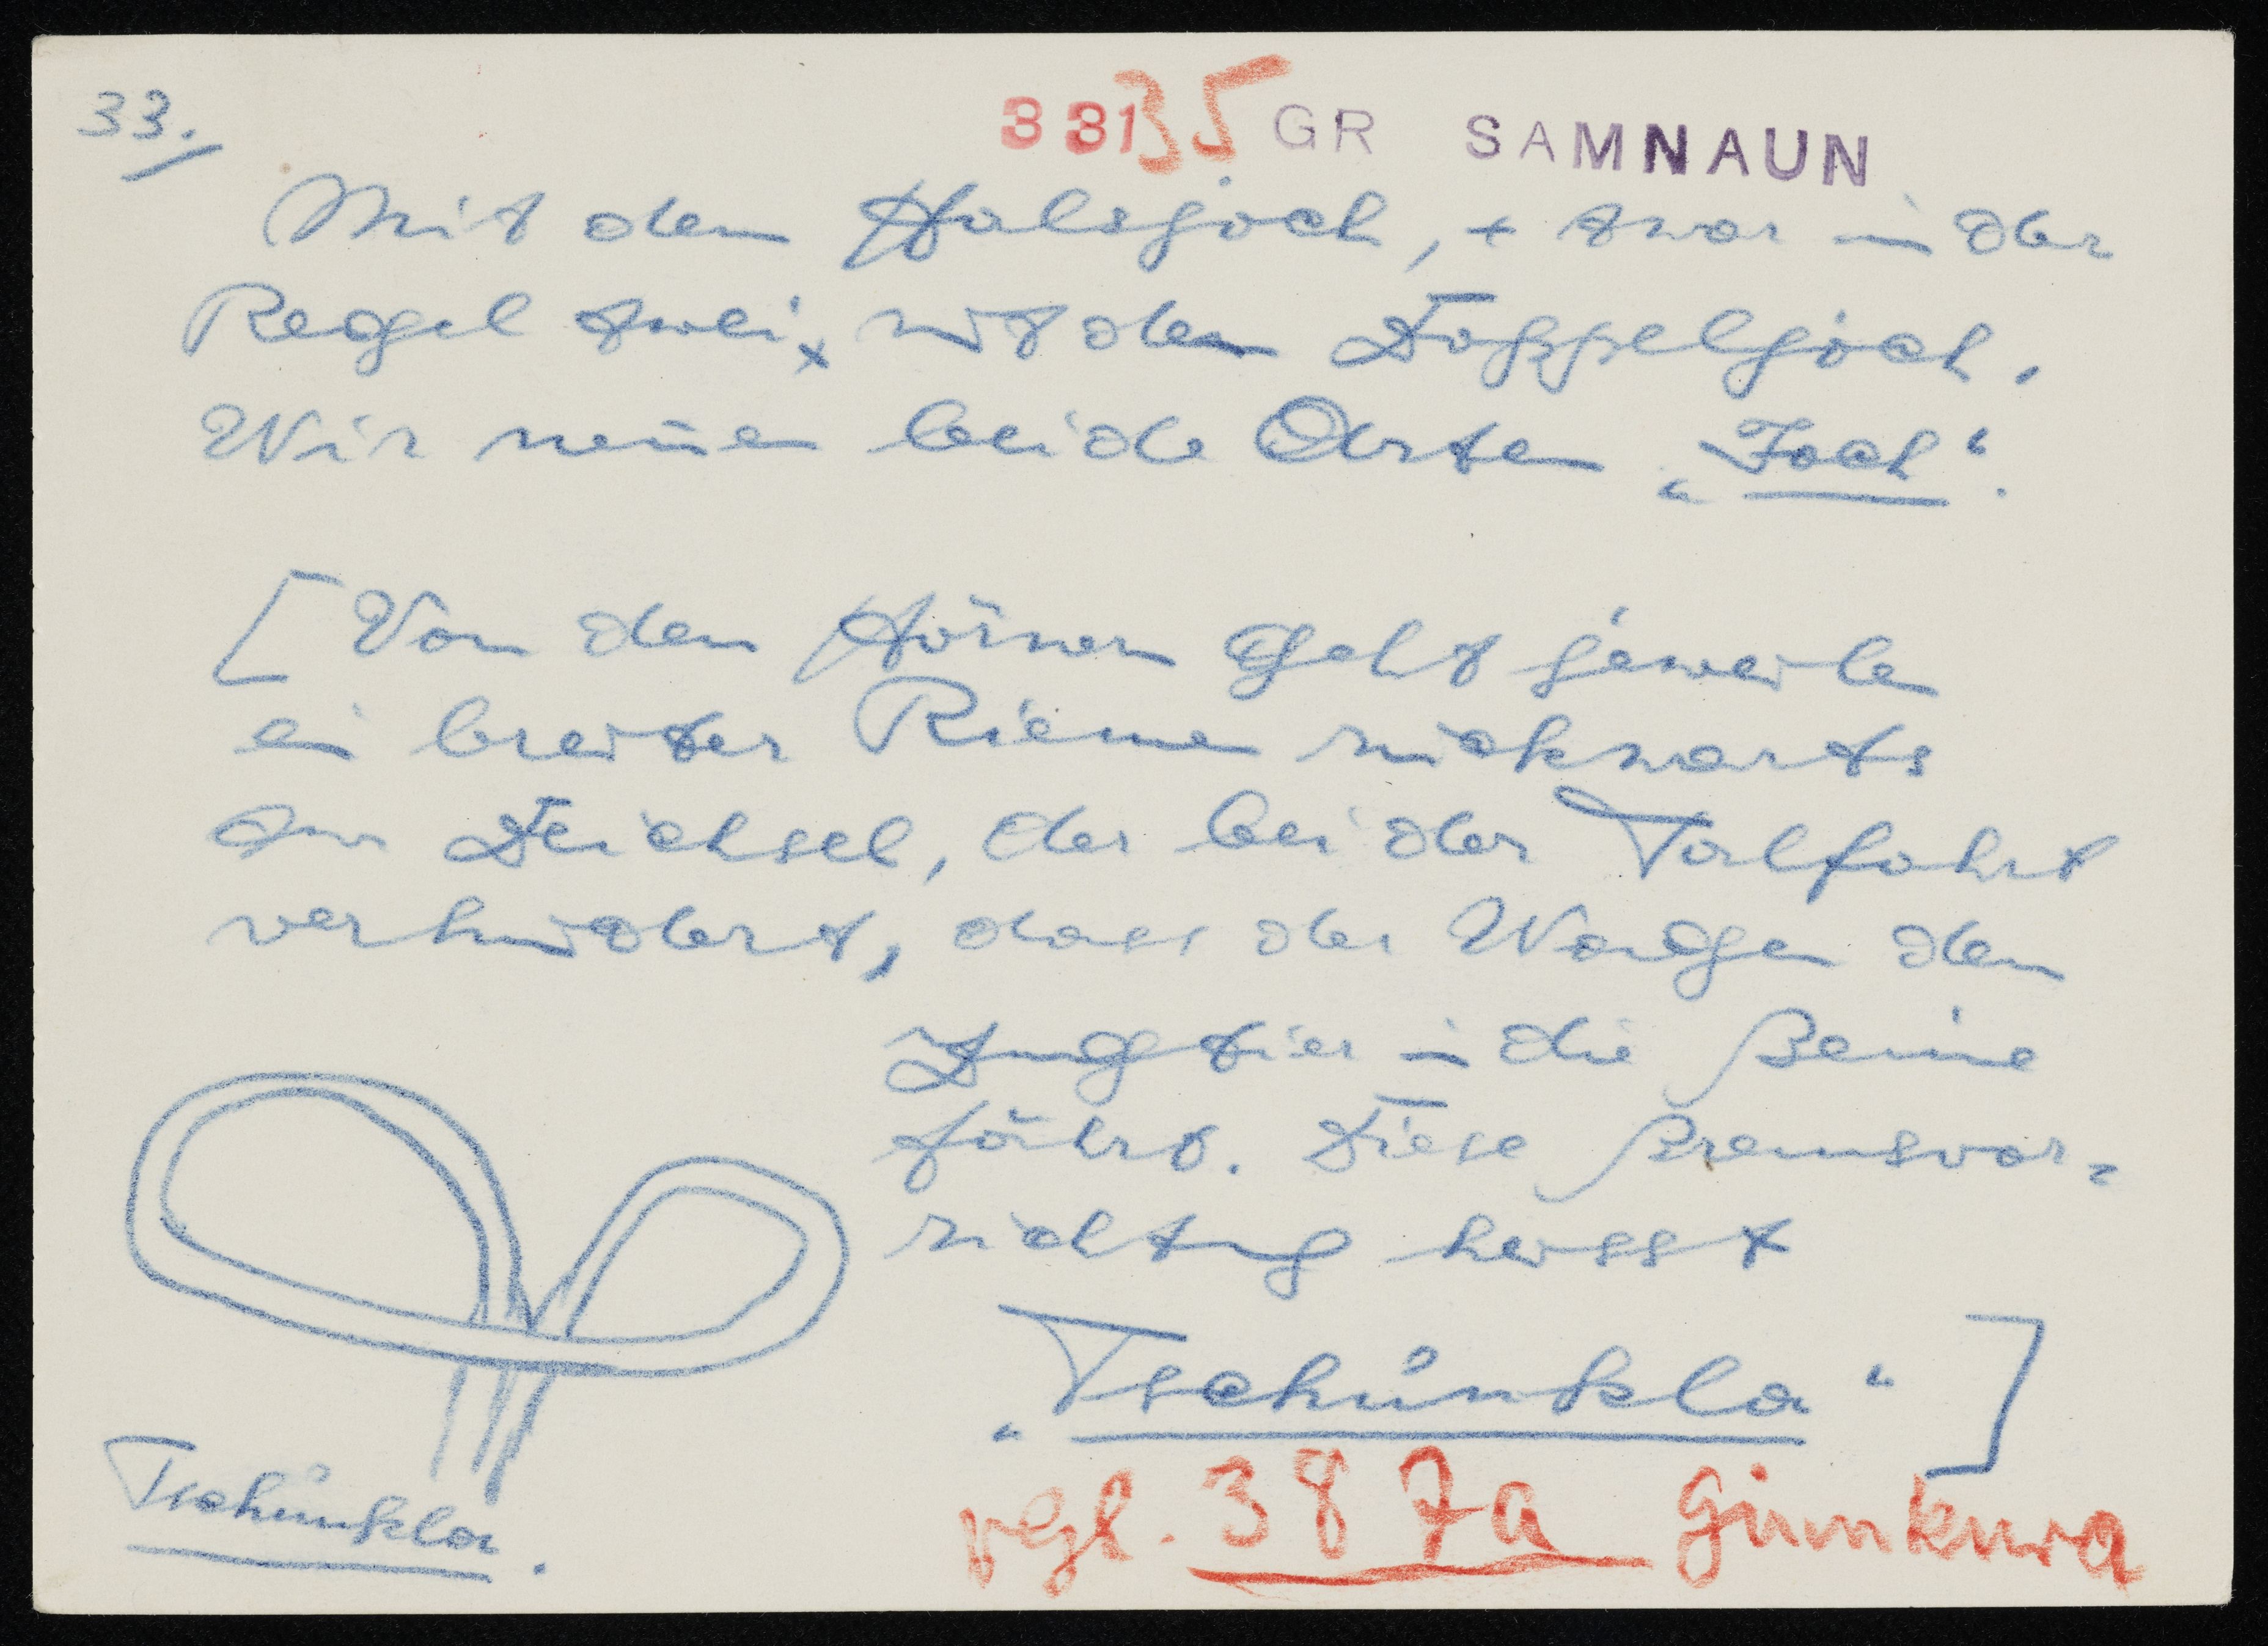 33.
33135 GR SAMNAUN
Mit dem Halsjoch, + zwar in der
Regel zwei, mit dem Doppeljoch.
Wir nenen beide Arten „Joch“.
[Von den Hörnern geht jeweilen
ein breiter Riemen rückwärts
zur Deichsel, der bei der Talfahrt
verhindert, dass der Wagen dem
Zugtier in die Beine
fährt. Diese Bremsvor=
richtung heisst
„Tschúnkla“]
Tschúnkla.
vgl. 387a